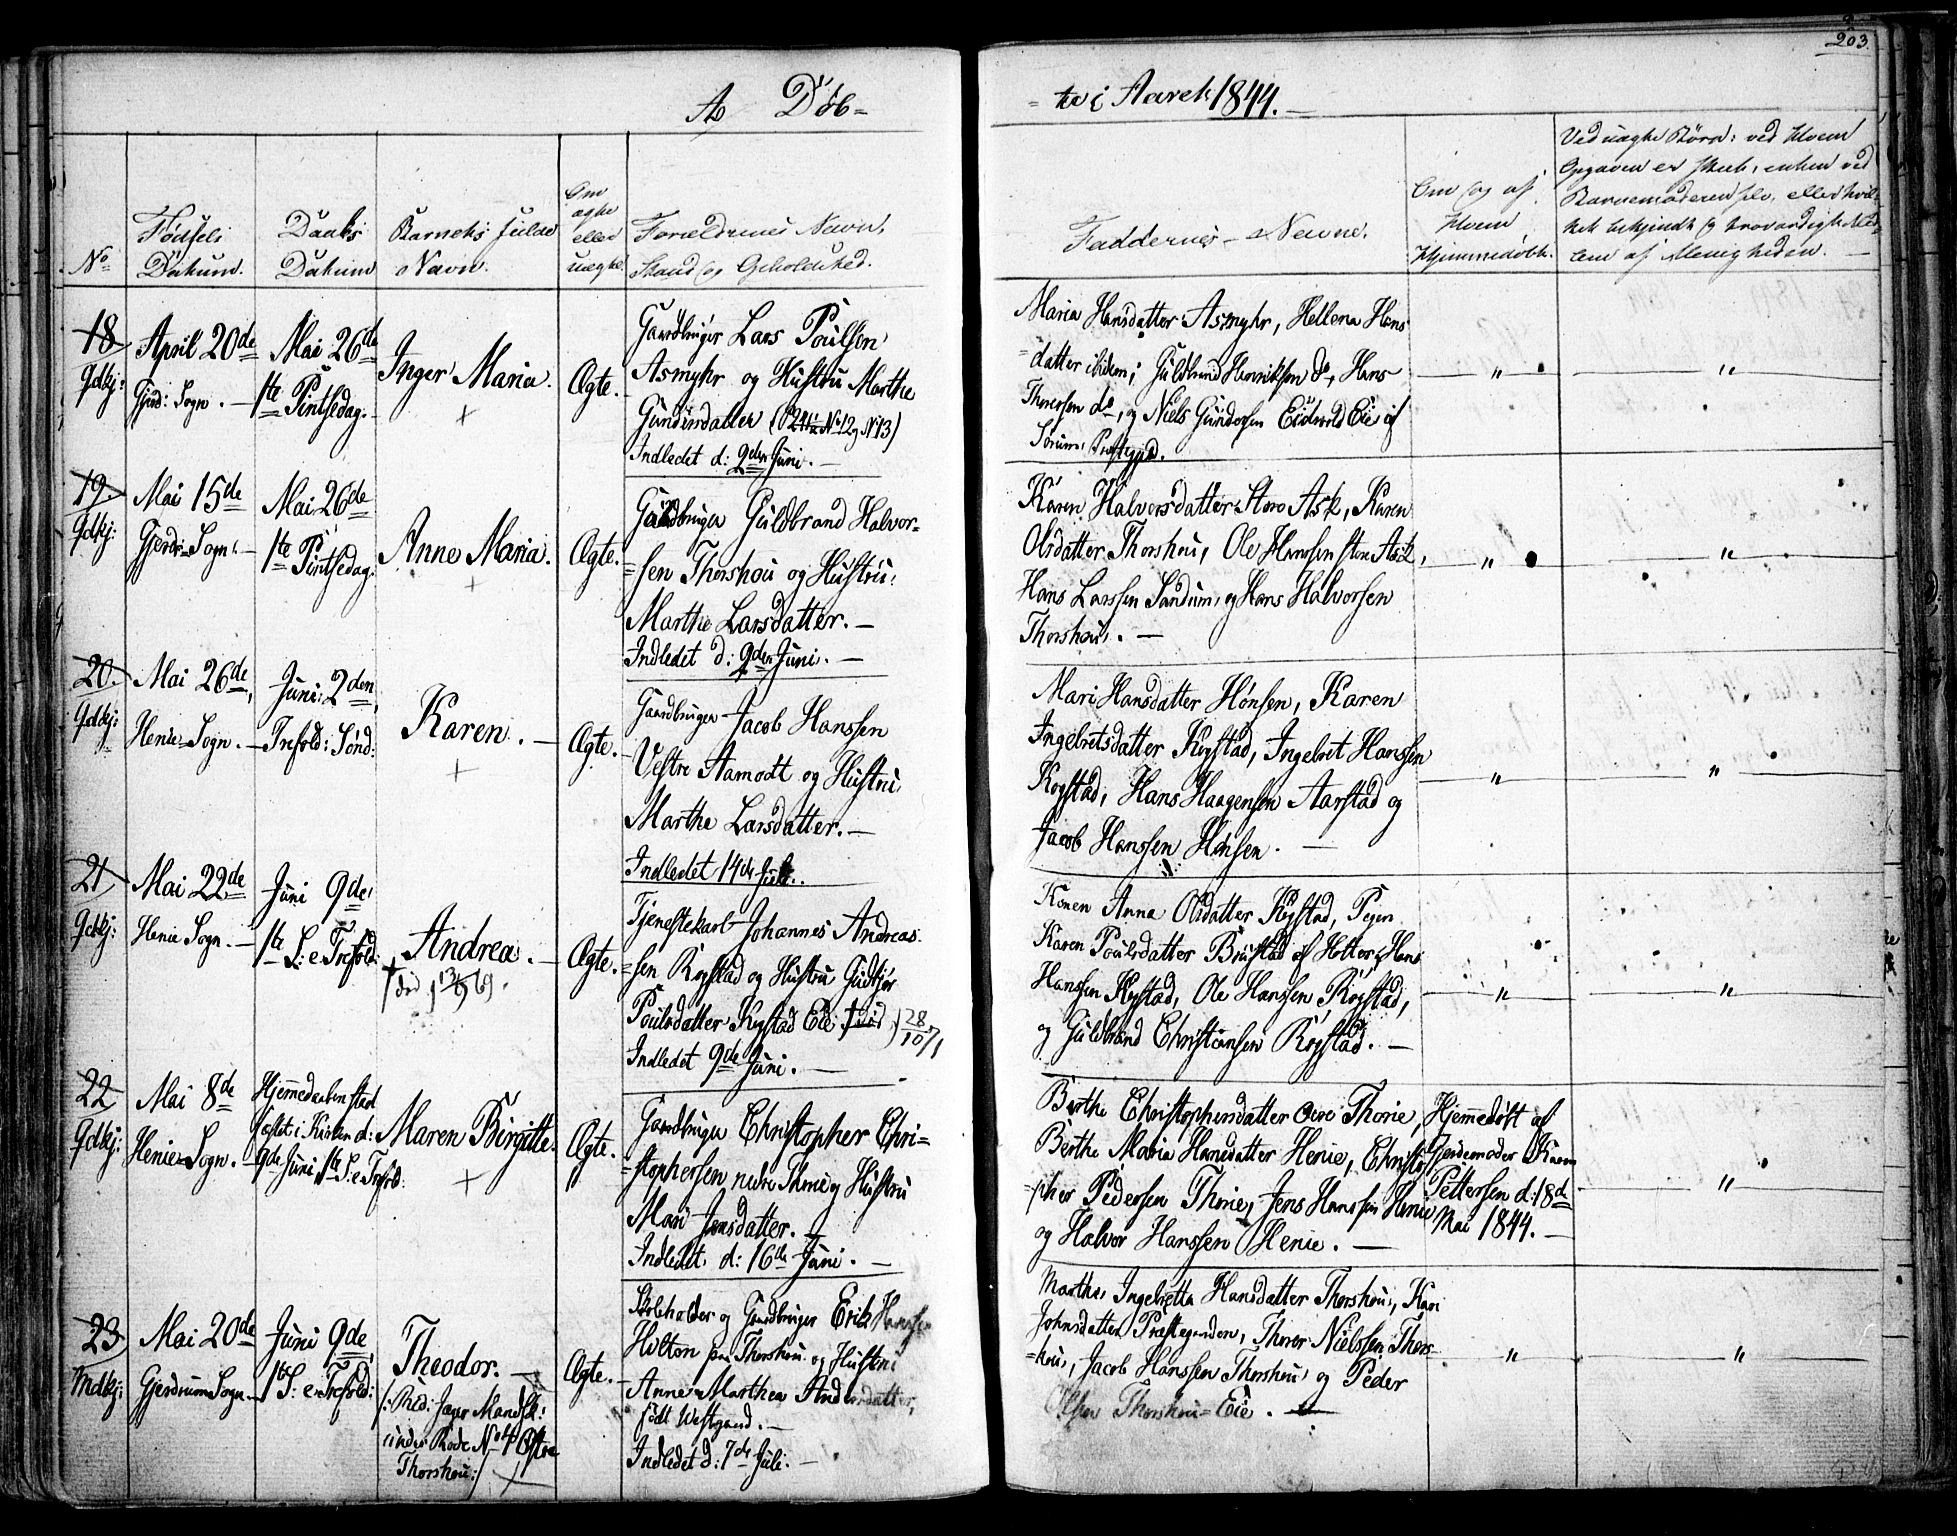 203.
A Døb=
=te i Aaret 1844. —
No
Fødsels Datum.
Daabs Datum
Barnets fulde Navn.
Om ægte eller uægte.
Forældrenes Navn, Stand og Beholdthed.
Faddernes Navne.
Om og af Hvem Hjemmedøbt.
Ved uægte Børn: ved Hvem
Opgaven er skeet, enten ved
Barnemoderen selv, eller hvil-
ket bekjendt og troværdigt Med-
lem af Menigheden. —
18
Qdkj:
April 20de
Gjerd: Sogn. —
Mai 26de
1ste Pintsedag. —
Inger Maria.
Ægte. —
Gaardbruger Lars Poulsen
Asmyhr og Hustru Marthe
Gundersdatter
Indledet d: 9den Juni. —
Maria Hansdatter Asmyhr, Hellena Hans
datter ibidem; Guldbrand Henriksen do, Hans
Thoresen do, og Niels Gundersen Eidsvold Eie af
Sørums Præstegjeld.
19.
Qdkj:
Mai 15de
Gjerdr: Sogn. —
Mai 26de
1ste Pintsedag.
Anne Maria.
Ægte. —
Gaardbruger Guldbrand Halvor=
=sen Thorshou og Hustru
Marthe Larsdatter. —
Indledet d: 9den Juni. —
Karen Halvorsdatter Store Ask, Karen
Olsdatter Thorshou, Ole Hanssen store Ask,
Hans Larssen Sandum, og Hans Halvorsen
Thorshou. —
20.
Qdkj:
Mai 26de,
Henie Sogn. —
Juni 2den,
Trefold: Sønd:
Karen. —
Ægte. —
Gaardbruger Jacob Hanssen
Vestre Aamodt og Hustru
Marthe Larsdatter. —
Indledet 14de Juli.
Mari Hansdatter Hønsen, Karen
Ingebretsdatter Kogstad, Ingebret Hanssen
Kogstad, Hans Haagensen Aarstad og
Jacob Hanssen Hønsen. —
21
Qdkj:
Mai 22de
Henie Sogn. —
Juni 9de
1ste S: e: Trefold:
Andrea. —
† død 13/9 69.
Ægte. —
Tjenestekarl Johannes Andreas
=sen Rogstad og Hustru Gudbjør
Poulsdatter Kogstad Eie. † død 28/10 71
Indledet 9de Juni. —
Konen Anna Olsdatter Kogstad, Pigen
Karen Poulsdatter Brustad af Holter, Hans
Hanssen Kogstad, Ole Hanssen Rogstad,
og Guldbrand Christiansen Rogstad. —
22
Qdkj:
Mai 8de
Henie Sogn. —
Hjemmedaaben stad
fæstet i Kirken d:
9de Juni 1ste S: e: Trefold:
Maren Birgitte.
Ægte. —
Gaardbruger Christopher Chri=
=stophersen nedre Thorie og Hustru
Mari Jensdatter. —
Indledet d: 16de Juni. —
Berthe Christophersdatter øvre Thorie,
Berthe Maria Hansdatter Henie, Christo
=pher Pedersen Thorie, Jens Hanssen Henie
og Halvor Hanssen Henie. —
Hjemmedøbt af
Jordemoder Karen
Pettersen d: 18de
Mai 1844. —
23
Mdkj:
Mai 20de
Gjerdrum Sogn. —
Juni 9de,
1ste S: e: Trefold:
Theodor. —
under Rode No 40 Østre
Thorshou:/
Ægte. —
Skoleholder og Gaardbruger Erik Hanssen
Hilton paa Thorshou og Hustru
Anne Marthea Andersdatter,
født Westgaard. —
Indledet d: 7de Juli. —
Marthe Ingebretta Hansdatter Thorshou, Kari
Johnsdatter Præstegarden, Thorer Nielssen Thors=
=hou, Jacob Hanssen Thorshou og Peder
Olsen Thorshou=Eie. —